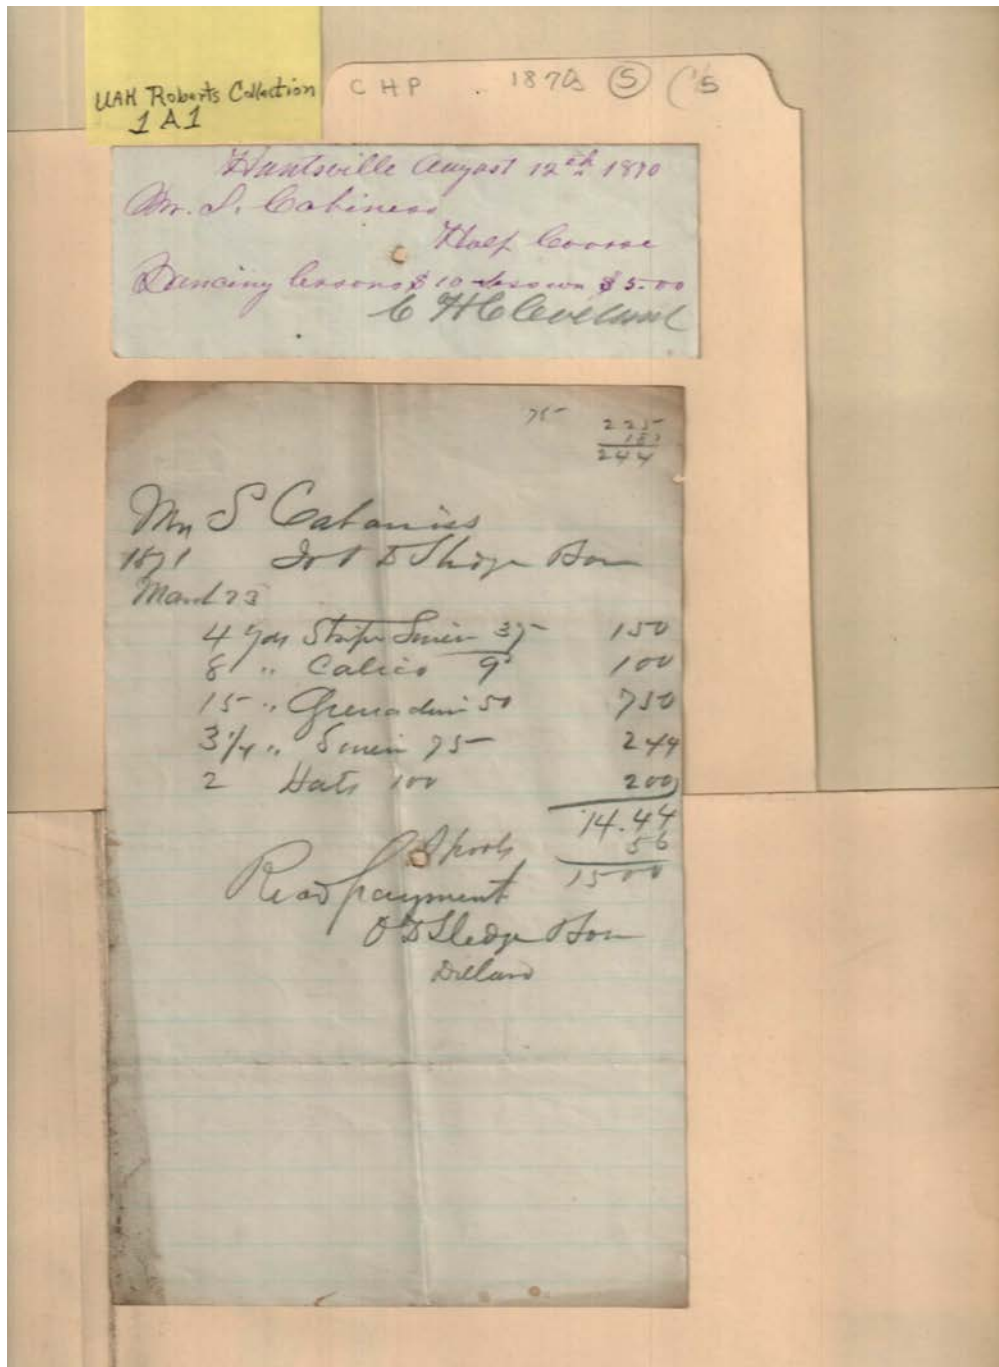 UAH Roberts Collection
1A1
CHP . 1870s 5 ('5
Huntsville August 12th 1870
Mr. S. Cabiness
Half Course
Dancing lessons $10 $5.00
C H Cleveland
75
225
244
Mr S Cabaniss
1871 To O D Sledge
March 23
4 yds Stripe 37 150
8 " Calico 9 100
15 " Grenadine 50 750
3 1/4 " 75 244
2 Hats 100 200
14.44
Spools 56
1500
Recd payment
O D Sledge